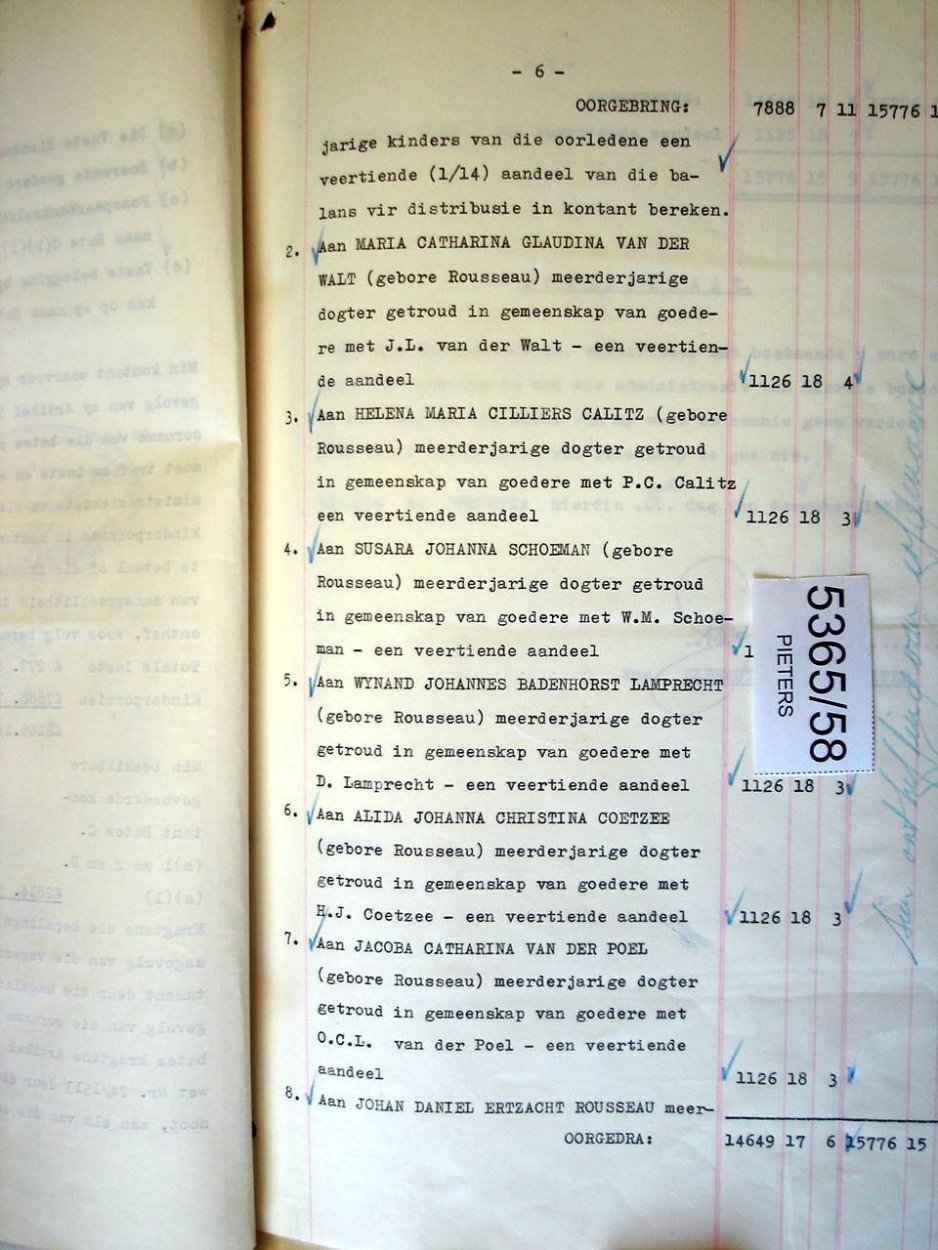 - 6 -
OORGEBRING: 7888 7 11 15776 1
jarige kinders van die oorledene een
veertiende (1/14) aandeel van die ba-
lans vir distribusie in kontant bereken.
2. Aan MARIA CATHARINA GLAUDINA VAN DER
WALT (gebore Rousseau) meerderjarige
dogter getroud in gemeenskap van goede-
re met J.L. van der Walt - een veertien-
de aandeel 1126 18 4
3. Aan HELENA MARIA CILLIERS CALITZ (gebore
Rousseau) meerderjarige dogter getroud
in gemeenskap van goedere met P.C. Calitz
een veertiende aandeel 1126 18 3
4. Aan SUSARA JOHANNA SCHOEMAN (gebore
Rousseau) meerderjarige dogter getroud
in gemeenskap van goedere met W.M. Schoe-
man - een veertiende aandeel 1
5365/58
PIETERS
5. Aan WYNAND JOHANNES BADENHORST LAMPRECHT
(gebore Rousseau) meerderjarige dogter
getroud in gemeenskap van goedere met
D. Lamprecht - een veertiende aandeel 1126 18 3
6. Aan ALIDA JOHANNA CHRISTINA COETZEE
(gebore Rousseau) meerderjarige dogter
getroud in gemeenskap van goedere met
H.J. Coetzee - een veertiende aandeel 1126 18 3
7. Aan JACOBA CATHARINA VAN DER POEL
(gebore Rousseau) meerderjarige dogter
getroud in gemeenskap van goedere met
O.C.L. van der Poel - een veertiende
aandeel 1126 18 3
8. Aan JOHAN DANIEL ERTZACHT ROUSSEAU meer-
OORGEDRA: 14649 17 6 15776 15